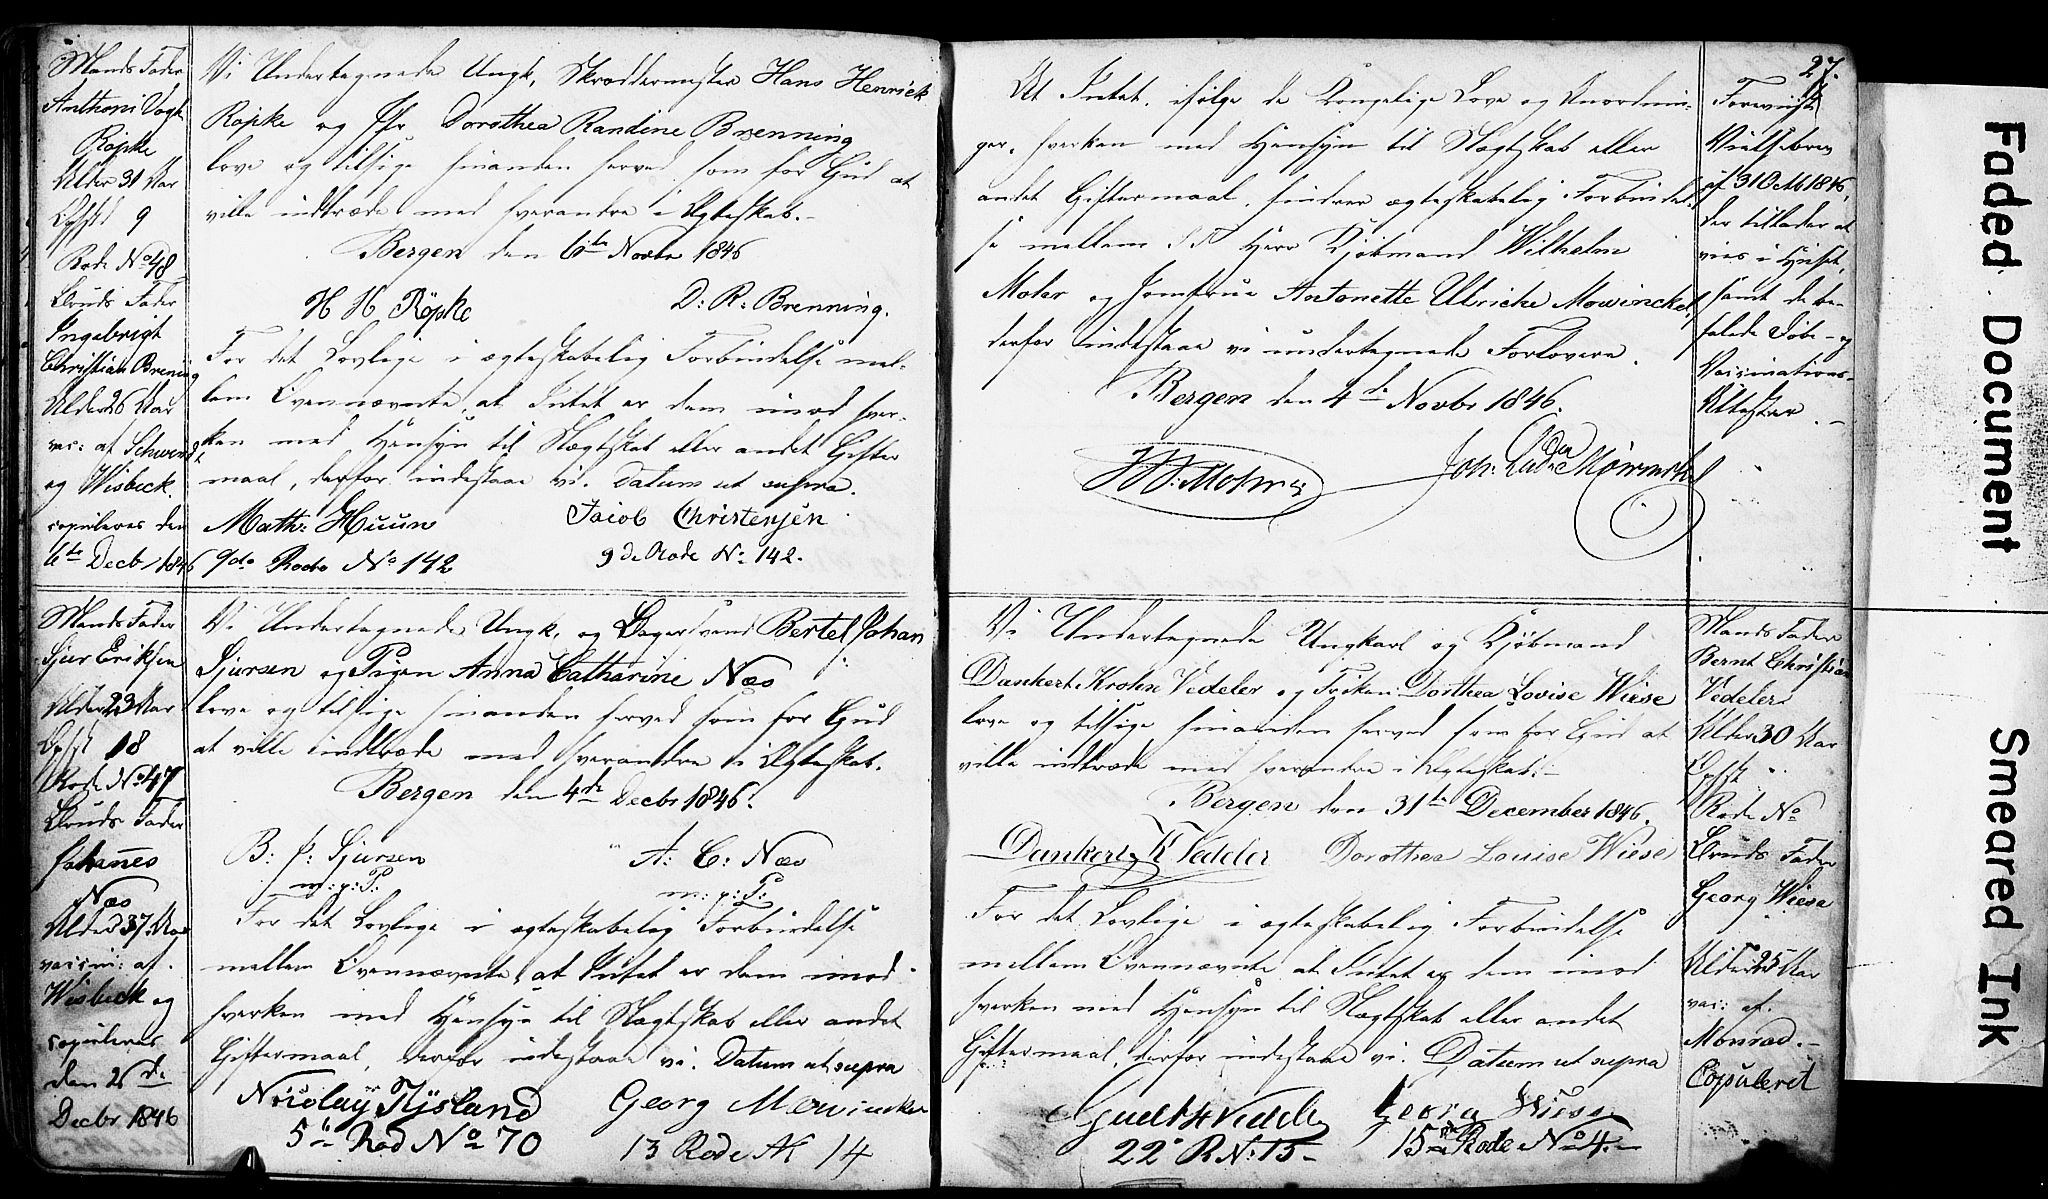 Mands Fader
Anthoni Vogt
Röpke
Alder 31 Aar
Opfst 9
Rode No 48
Bruds Fader
Ingebrigt
Christian Brening
Alder 26 Aar
vac: af Schwindt
og Wisbeck.
copuleres den
6te Decbr 1846
Vi Undertegnede Ungk. Skræddermester Hans Henrick
Röpke og Jfr Dorothea Randine Brenning
love og tilsige hinanden herved som for Gud at
ville indtræde med hverandre i Ægteskab.-
Bergen den 6te Novbr 1846
H H Röpke D: R: Brenning.
For det Lovlige i ægteskabelig Forbindelse mel-
lem Ovennævnte, at Intet er dem imod hver-
ken med Hensyn til Slægtskab eller andet Gifter
maal, derfor indestaae vi. Datum ut supra.
Math: Huun Jacob Christensen
9de Rode No 142 9de Rode No 142.
Mands Fader
Sjur Eriksen
Alder 23 Aar
Opfst 18
Rode No 47
Bruds Fader
Johannes
Næs
Alder 37 Aar
vaccin: af
Wisbeck og
copuleres
den 26de
Decbr 1846
Vi Undertegnede Ungk. og Bagersvend Bertel Johan
Sjursen og Pigen Anna Catharine Næs
love og tilsige hinanden herved som for Gud
at ville indtræde med hverandre i Ægteskab.
Bergen den 4de Decbr 1846.
B: J: Sjursen A: C: Næs
m: p: P. m: p: P:
For det Lovlige i ægteskabelig Forbindelse
mellem Ovennævnte, at Intet er dem imod
hverken med Hensyn til Slægtskab eller andet
Giftermaal, derfor indestaae vi. Datum ut supra
Nicolay Tysland Georg Mowinckel
5te Rod No 70 13 Rode No 14
27.
At Intet, ifølge de Kongelige Love og Anordnin-
ger, hverken med Hensyn til Slægtskab eller
andet Giftermaal, hindrer ægteskabelig Forbindel-
se mellem S T Herr Kjøbmand Wilhelm
Mohr og Jomfrue Antonette Ulriche Mowinckel,
derfor indestaae vi undertegnede Forlovere.
Bergen den 4de Novbr 1846.
Mohr Joh: Mowinckel
Forevist
Vielsebrev
af 31 Octb 1846,
der tillader at
vies i Huset,
samt de be-
falede Døbe- og
Vaccinations-
Attester.-
Vi Undertegnede Ungkarl og Kjøbmand
Dankert Krohn Vedeler og Frøken Dorthea Lovise Wiese
love og tilsige hinanden herved som for Gud at
ville indtræde med hverandre i Ægteskab.-
Bergen den 31te December 1846.
Dankert K Vedeler Dorothea Louise Wiese
For det Lovlige i ægteskabelig Forbindelse
mellem Ovennævnte at Intet er dem imod
hverken med Hensyn til Slægtskab eller andet
Giftermaal, derfor indestaae vi. Datum ut supra
Georg Wiese
22 R No: 15- 15de Rode No 4.-
Mands Fader
Bernt Christian
Vedeler
Alder 30 Aar
Opfst "
Rode No
Bruds Fader
Georg Wiese
Alder 25 Aar
vac: af
Monrad.-
Copuleret
Faded Document
Smeared Ink